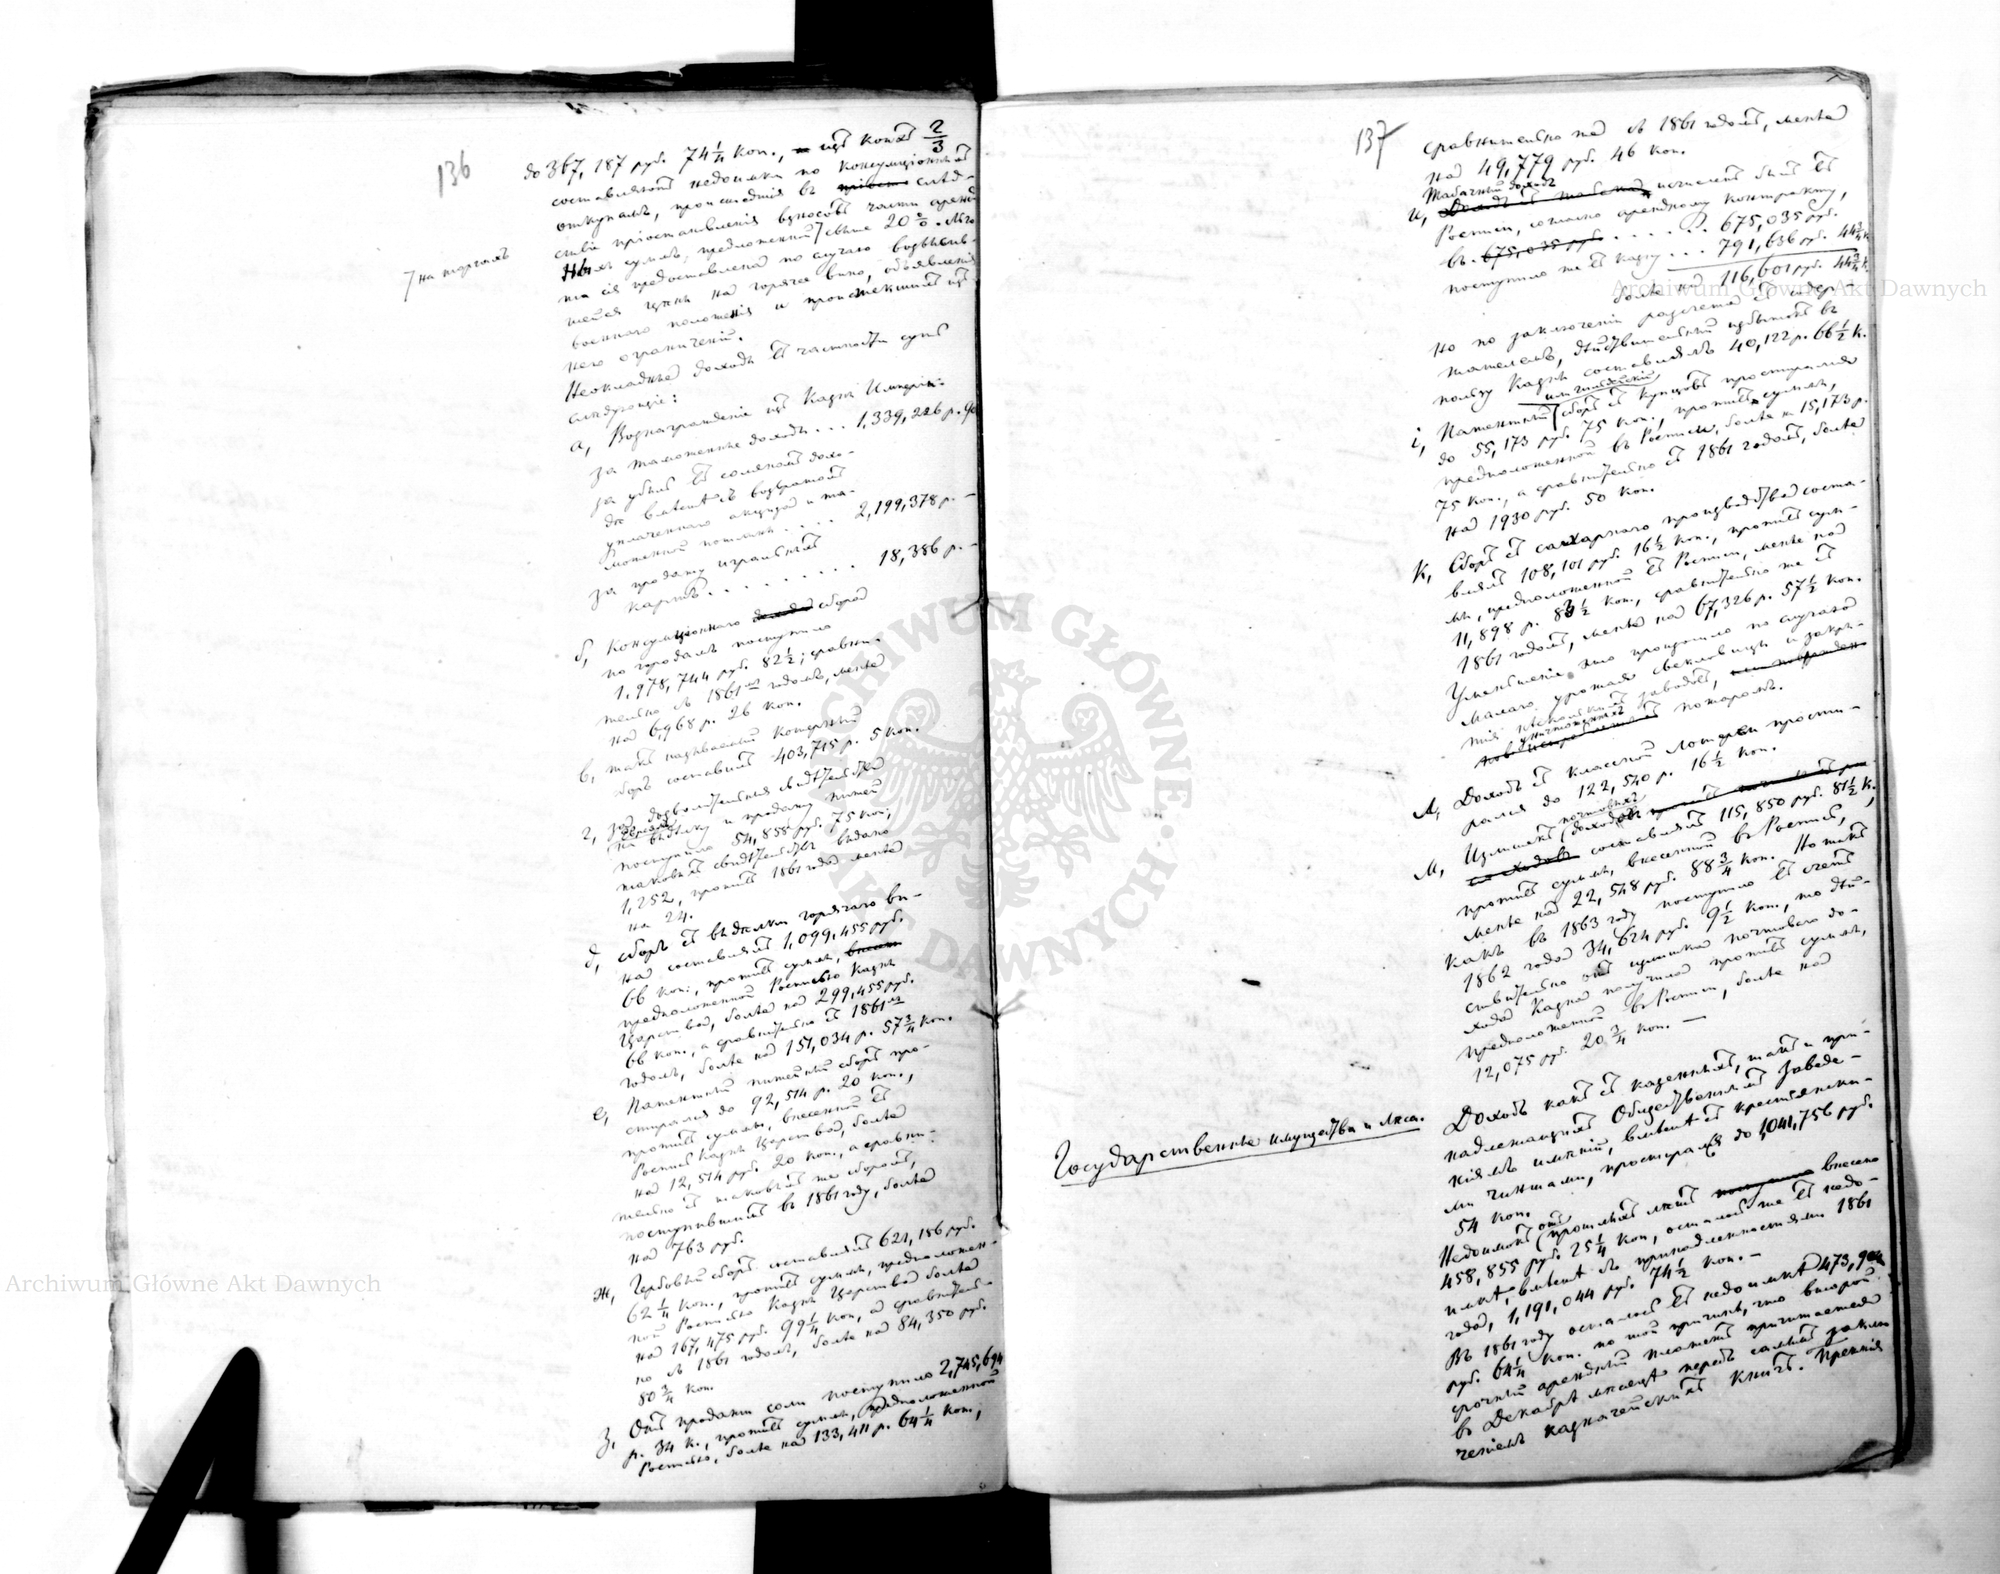 136
до 367,187 руб. 74¼ коп., изъ коихъ 2/3
составляютъ недоимки по консумціоннымъ
откупамъ, происшедшія въ слѣд-
ствіе пріостановленія взносовъ части аренд-
ныхъ суммъ, предложенной свыше 20%. Льго-
та сія предоставлена по случаю возвысив-
шейся цѣны на горячее вино, объявленія
военнаго положенія и проистекшихъ изъ
него ограниченій.
на торгахъ
Неокладные доходы въ частности суть
слѣдующіе:
а, Вознагражденіе изъ Казны Имперіи:
за таможенные доходы . . . 1,339,226 р. 90
за убыт. въ соляномъ дохо-
дѣ вмѣстѣ съ возвратомъ
уплаченнаго акциза и та-
моженной пошлины . . . . 2,199,378 р. —
за продажу игральныхъ
картъ . . . . . . . . 18,386 р. —
б, Консумціоннаго сбора
по городамъ поступило
1,978,744 руб. 82½; сравни-
тельно съ 1861мъ годомъ, менѣе
на 6,968 р. 26 коп.
в, такъ называемый Кошерный
сборъ составилъ 403,715 р. 5 коп.
г, за дозволительныя свидѣтельства
на выдѣлку и продажу питей
поступило 54,855 руб. 75 коп;
таковыхъ свидѣтельствъ выдано
1,252, противъ 1861 года менѣе
на 24.
д, сборъ съ выдѣлки горячаго ви-
на составлялъ 1,099,455 руб.
66 коп., противъ суммы,
предположенной Росписью Казны
Царства, болѣе на 299,455 руб.
66 коп., а сравнительно съ 1861мъ
годомъ, болѣе на 151,034 р. 57¾ коп.
е, Патентный питейный сборъ про-
стирался до 92,514 р. 20 коп.,
противъ суммы, внесенной въ
Роспись Казны Царства, болѣе
на 12,514 руб. 20 коп., а сравни-
тельно съ таковымъ же сборомъ,
поступившимъ въ 1861 году, болѣе
на 763 руб.
ж, Гербовый сборъ составлялъ 621,186 руб.
62¼ коп., противъ суммы, предположен-
ной Росписью Казны Царства болѣе
на 167,475 руб. 99¼ коп, а сравнитель-
но съ 1861 годомъ, болѣе на 84,350 руб.
80¾ коп.
з, Отъ продажи соли поступило 2,745,694
р. 34 к., противъ суммы, предположенной
Росписью, болѣе на 133,411 р. 64¼ коп.,
137
сравнительно же съ 1861 годомъ, менѣе
на 49,779 руб. 46 коп.
Табачный доходъ
и, исчисленъ былъ въ
Росписи, согласно арендному контракту,
въ . . . . . 675,035 руб.
поступило же въ казну . . . 791,636 руб. 44¾ к.
болѣе на 116,601 руб. 44¾ к.
но по заключеніи разсчета съ содер-
жателемъ, дѣйствительный избытокъ въ
пользу Казны составлялъ 40,122 р. 66½ к.
і, Патентный сборъ съ купцовъ простирался
до 55,173 руб. 75 коп., противъ суммы,
предположенной въ Росписи, болѣе на 15,173 р.
75 коп., а сравнительно съ 1861 годомъ, болѣе
на 1930 руб. 50 коп.
к, Сборъ съ сахарнаго производства соста-
влялъ 108,101 руб. 16½ коп., противъ сум-
мы, предположенной въ Росписи, менѣе на
11,898 р. 83½ коп., сравнительно же съ
1861 годомъ, менѣе на 67,326 р. 57½ коп.
Уменьшеніе это произошло по случаю
малаго урожая свекловицы и закры-
тія нѣсколькихъ заводовъ,
уничтоженныхъ пожаромъ.
л, Доходъ съ классной Лотереи прости-
рался до 122,540 р. 16½ коп.
м, Излишекъ почтовыхъ доходовъ
составлялъ 115,850 руб. 81½ к.
противъ суммы, внесенной въ Роспись,
менѣе на 22,548 руб. 88¾ коп. Но такъ
какъ въ 1863 году поступило въ счетъ
1862 года 34,624 руб. 9½ коп, то дѣй-
ствительно отъ излишка почтоваго до-
хода Казна получила противъ суммы,
предположенной въ Росписи, болѣе на
12,075 руб. 20¾ коп. —
Государственные имущества и лѣса.
Доходъ какъ съ казенныхъ, такъ и при-
надлежащихъ Общественнымъ Заведе-
ніямъ имѣній, вмѣстѣ съ крестьянски-
ми чиншами, простирался до 1,041,756 руб.
54 коп.
Недоимокъ отъ прошлыхъ лѣтъ внесено
458,855 руб. 25¼ коп, осталось же въ недо-
имкѣ, вмѣстѣ съ принадлежностями 1861
года, 1,191,044 руб. 74½ коп. —
Въ 1861 году осталось въ недоимкѣ 473,904
руб. 64¼ коп. по той причинѣ, что второй
срочный арендный платежъ причитается
въ Декабрѣ мѣсяцѣ передъ самымъ заклю-
ченіемъ казначейскихъ книгъ. Пренія